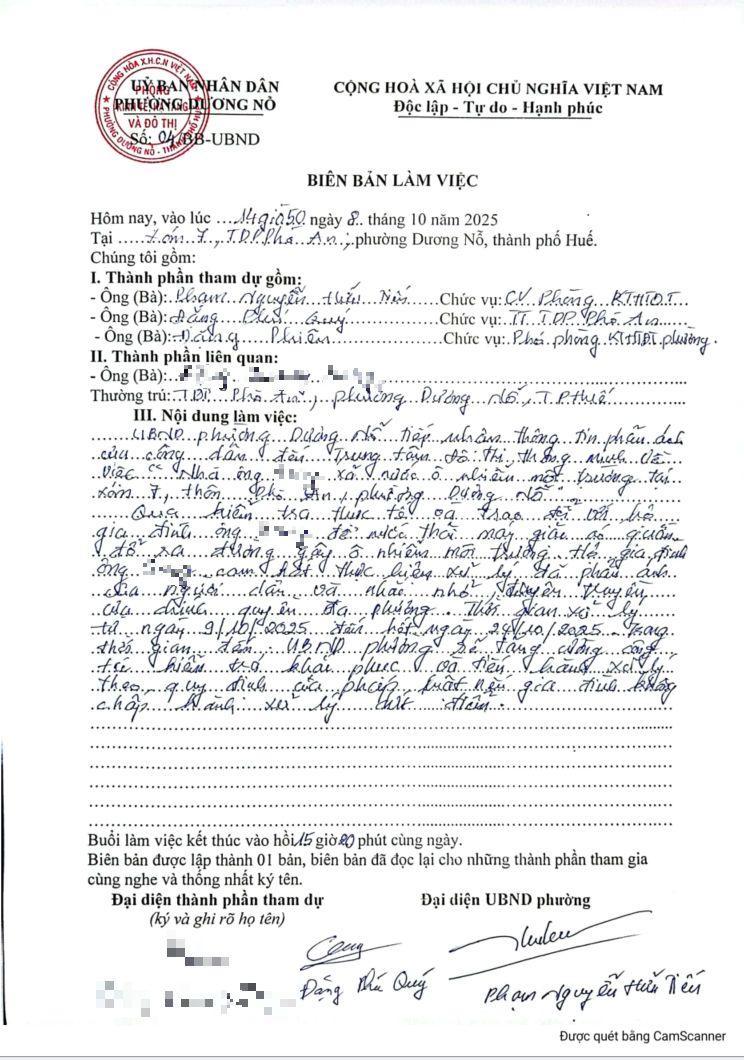 CỘNG HÒA X.H.C.N VIỆT NAM
PHÒNG
KINH TẾ, HẠ TẦNG
VÀ ĐÔ THỊ
PHƯỜNG DƯƠNG NỖ - THÀNH PHỐ HUẾ
UỶ BAN NHÂN DÂN
PHƯỜNG DƯƠNG NỖ
Số: 04/BB-UBND
CỘNG HOÀ XÃ HỘI CHỦ NGHĨA VIỆT NAM
Độc lập - Tự do - Hạnh phúc
BIÊN BẢN LÀM VIỆC
Hôm nay, vào lúc ...14 giờ 50. ngày 8.. tháng 10 năm 2025
Tại ..... xóm 7, TDP Phò An, phường Dương Nỗ, thành phố Huế.
Chúng tôi gồm:
I. Thành phần tham dự gồm:
- Ông (Bà): Phạm Nguyễn Hữu Tiến Chức vụ: CV Phòng KTHTĐT
- Ông (Bà): Đặng Phú Quý Chức vụ: TT TDP Phò An
- Ông (Bà): Đặng Phiên Chức vụ: Phó phòng KTHTĐT phường.
II. Thành phần liên quan:
- Ông (Bà):
Thường trú: TDP Phò An, phường Dương Nỗ, TP Huế
III. Nội dung làm việc:
UBND phường Dương Nỗ tiếp nhận thông tin phản ánh
của công dân đến Trung tâm đô thị thông minh về
việc "Nhà ông xả nước ô nhiễm môi trường tại
xóm 7, thôn Phò An, phường Dương Nỗ"
Qua kiểm tra thực tế và trao đổi với hộ
gia đình ông để nước thải máy giặt áo quần
đổ ra đường gây ô nhiễm môi trường. Hộ gia đình
ông cam kết thực hiện xử lý đã phản ánh
của người dân và nhắc nhở, tuyên truyền
của chính quyền địa phương. Thời gian xử lý
từ ngày 9/10/2025 đến hết ngày 24/10/2025. Trong
thời gian đến, UBND phường sẽ tăng cường công
tác kiểm tra khắc phục và tiến hành xử lý
theo quy định của pháp luật nếu gia đình không
chấp hành xử lý dứt điểm.
Buổi làm việc kết thúc vào hồi 15 giờ 20 phút cùng ngày.
Biên bản được lập thành 01 bản, biên bản đã đọc lại cho những thành phần tham gia
cùng nghe và thống nhất ký tên.
Đại diện thành phần tham dự
(ký và ghi rõ họ tên)
Đại diện UBND phường
Đặng Phú Quý
Phạm Nguyễn Hữu Tiến
Được quét bằng CamScanner